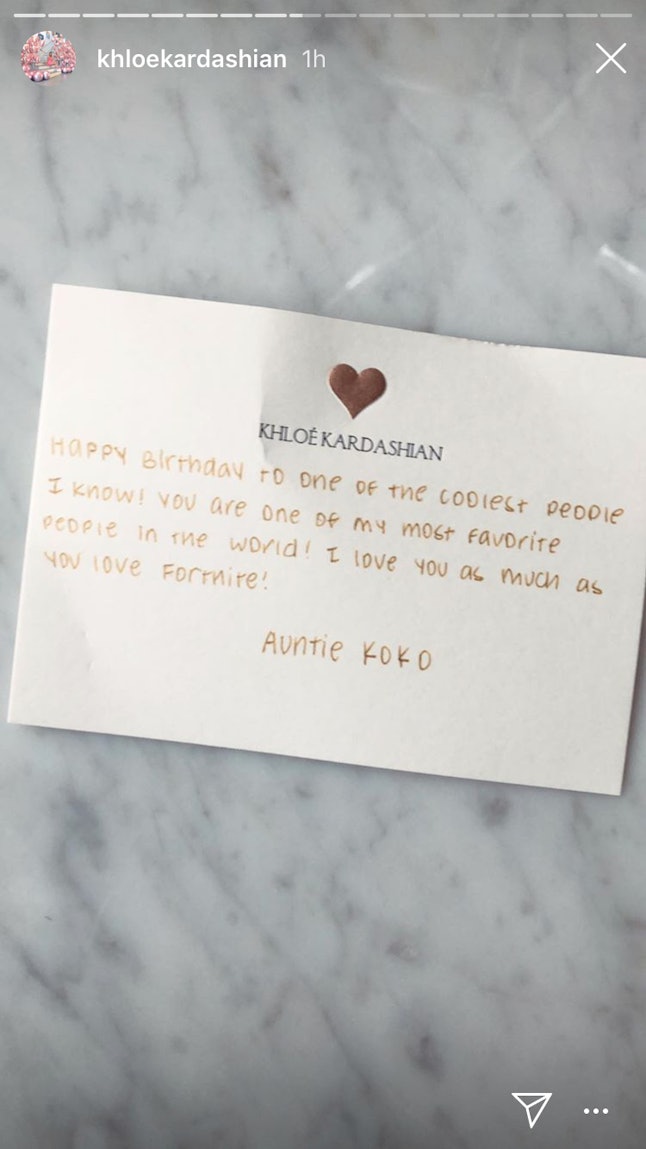 khloekardashian 1h
KHLOÉ KARDASHIAN
Happy Birthday to one of the coolest people
I know! you are one of my most favorite
people in the world! I love you as much as
you love Fortnite!
Auntie KOKO